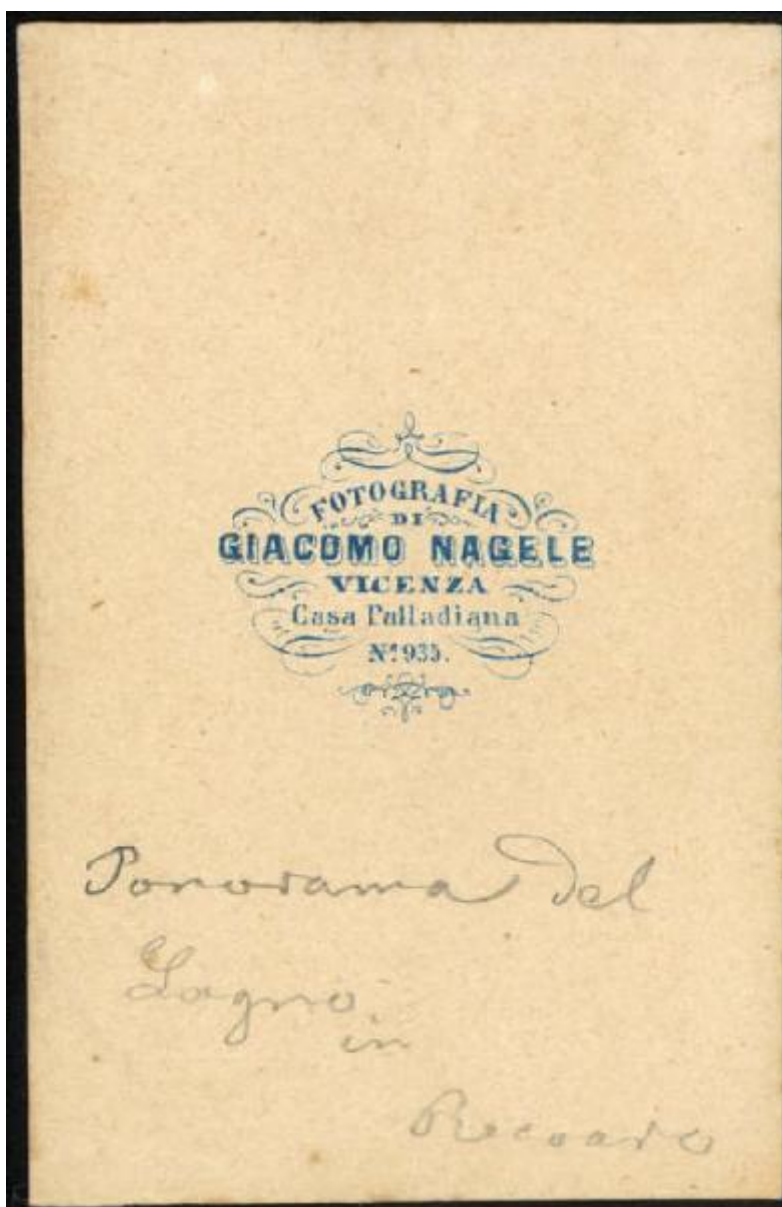 FOTOGRAFIA
DI
GIACOMO NAGELE
VICENZA
Casa Palladiana
Nº 935.
Panorama del
Lagno
in
Recoaro